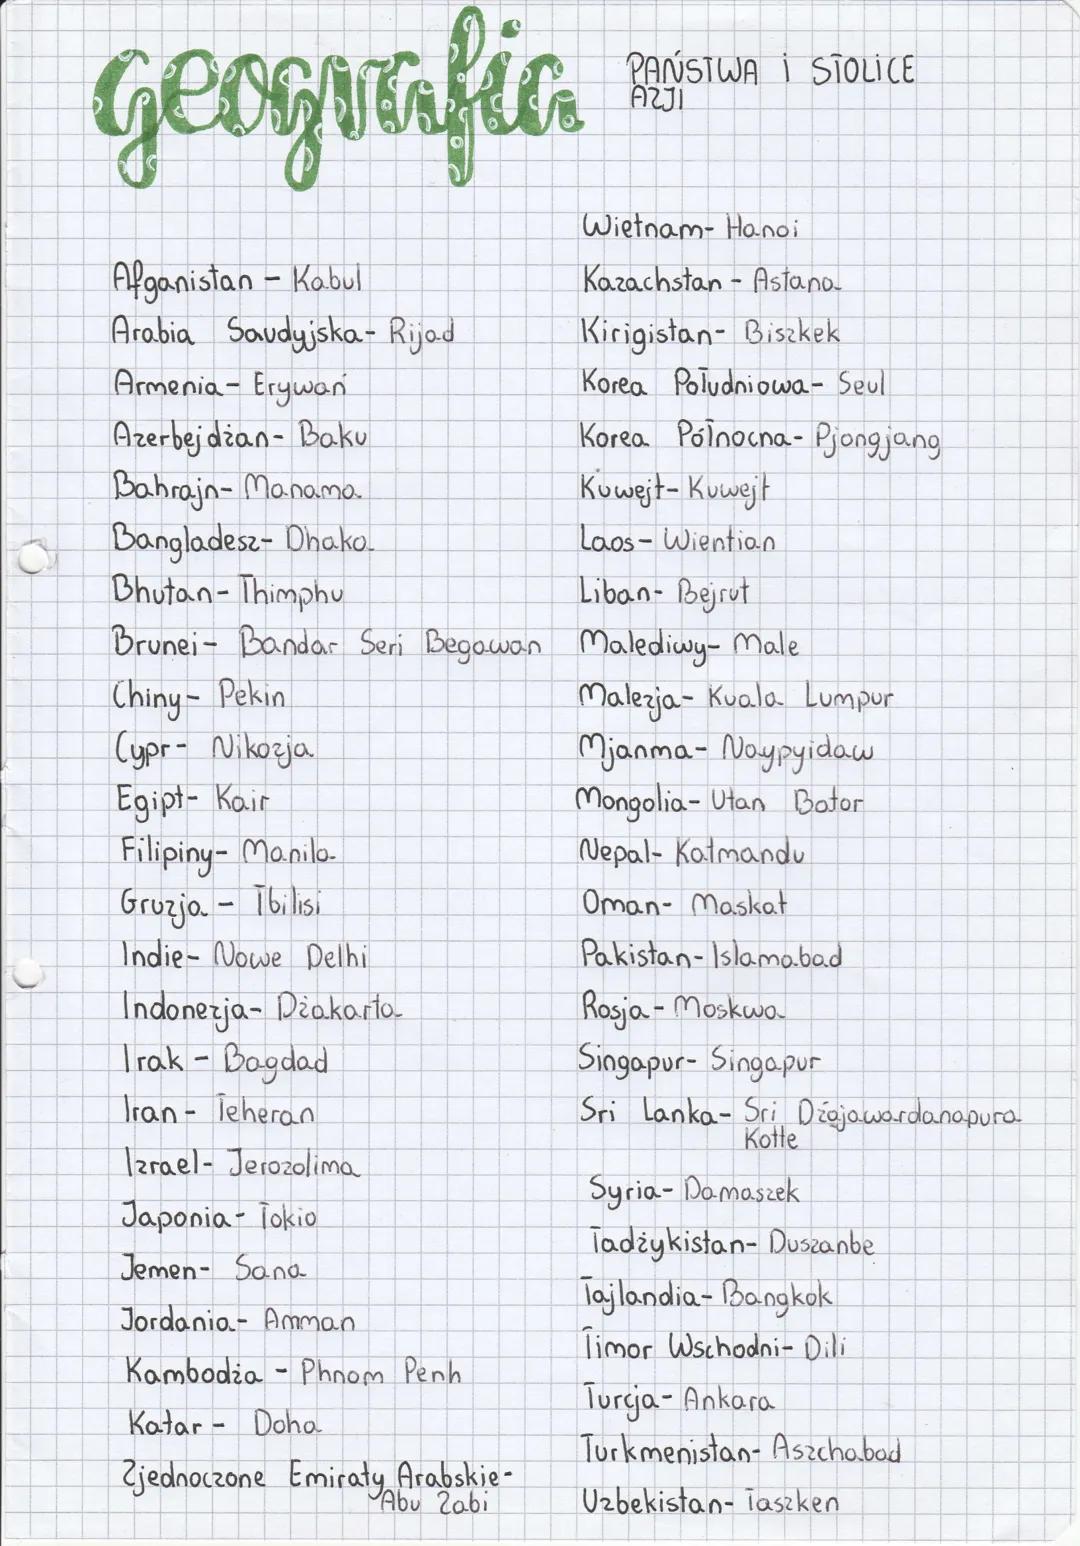 geografia
PAŃSTWA i STOLICE
AZJI
Afganistan - Kabul
Arabia Saudyjska- Rijad
Armenia- Erywań
Azerbejdżan- Baku
Bahrajn- Manama
Bangladesz- Dhaka
Bhutan- Thimphu
Brunei- Bandar Seri Begawan
Chiny- Pekin
Cypr- Nikozja
Egipt- Kair
Filipiny- Manila
Gruzja - Tbilisi
Indie- Nowe Delhi
Indonezja- Dżakarta
Irak - Bagdad
Iran - Teheran
Izrael- Jerozolima
Japonia- Tokio
Jemen- Sana
Jordania- Amman
Kambodża - Phnom Penh
Katar - Doha
Zjednoczone Emiraty Arabskie-
Abu Zabi
Wietnam- Hanoi
Kazachstan - Astana
Kirigistan- Biszkek
Korea Południowa- Seul
Korea Północna- Pjongjang
Kuwejt- Kuwejt
Laos- Wientian
Liban- Bejrut
Malediwy- Male
Malezja- Kuala Lumpur
Mjanma- Naypyidaw
Mongolia- Utan Bator
Nepal- Katmandu
Oman- Maskat
Pakistan- Islamabad
Rosja- Moskwa
Singapur- Singapur
Sri Lanka- Sri Dżajawardanapura
Kotte
Syria- Damaszek
Tadżykistan- Duszanbe
Tajlandia- Bangkok
Timor Wschodni- Dili
Turcja- Ankara
Turkmenistan- Aszchabad
Uzbekistan- Taszken